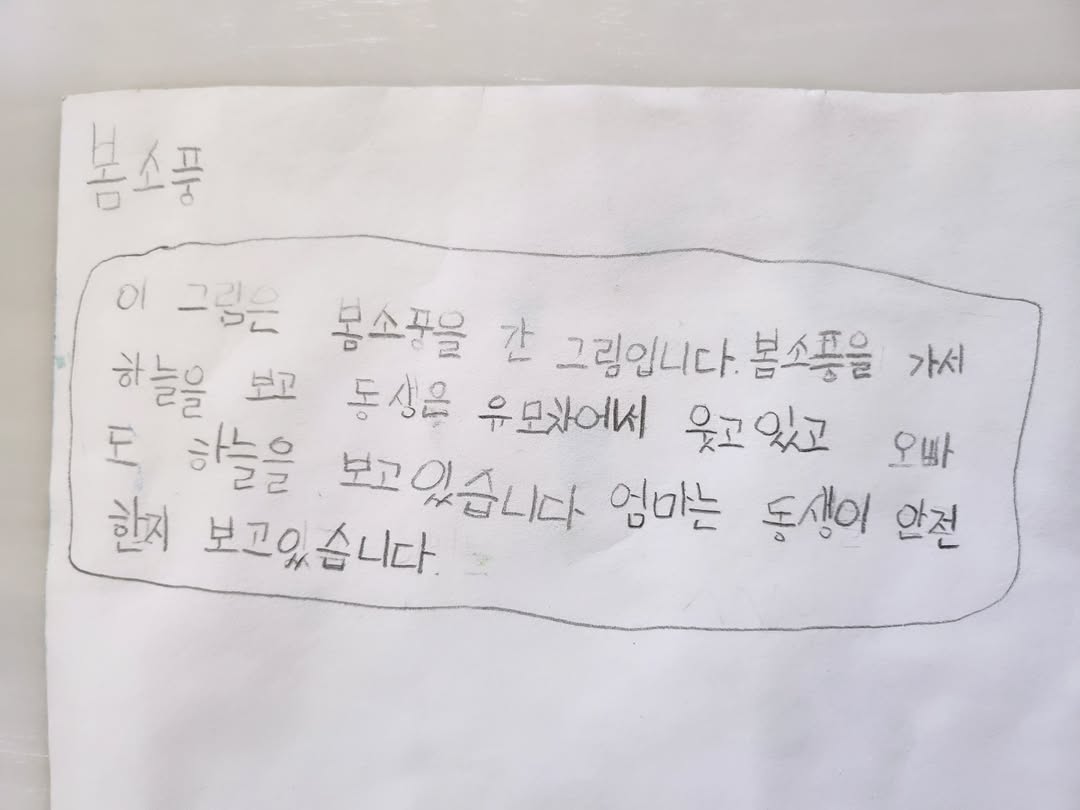 봄소풍
이 그림은 봄소풍을 간 그림입니다. 봄소풍을 가서
하늘을 보고 동생은 유모차에서 웃고있고 오빠
도 하늘을 보고있습니다 엄마는 동생이 안전
한지 보고있습니다.